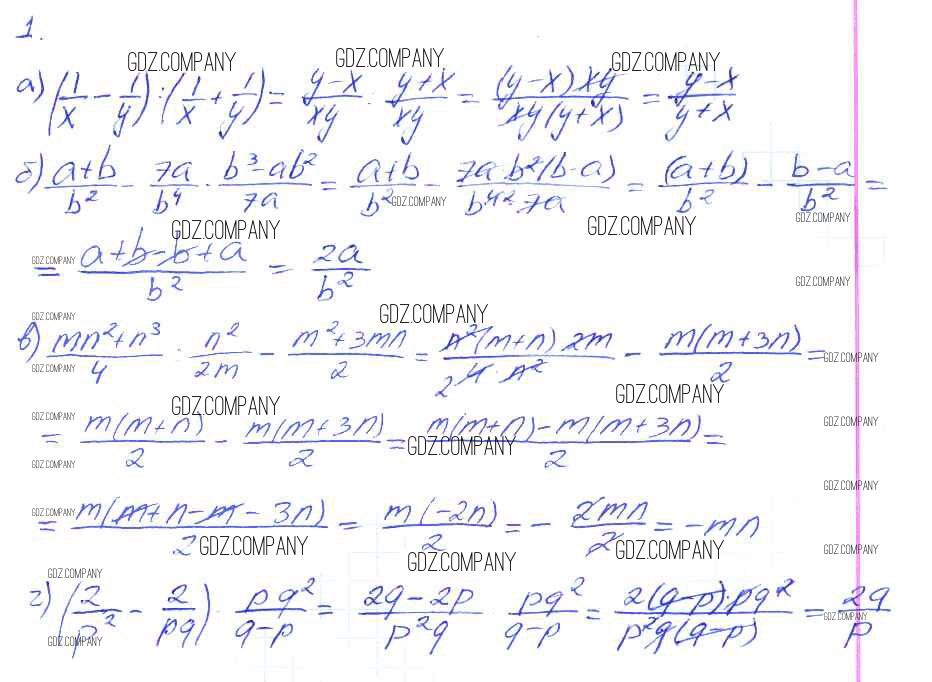 1.
GDZ.COMPANY GDZ.COMPANY GDZ.COMPANY
а) (1/x - 1/y) : (1/x + 1/y) = (y-x)/(xy) : (y+x)/(xy) = ((y-x)xy)/(xy(y+x)) = (y-x)/(y+x)
б) (a+b)/b² - 7a/b⁴ · (b³-ab²)/(7a) = (a+b)/b² - (7a·b²(b-a))/(b⁴ ²·7a) = (a+b)/b² - (b-a)/b² =
GDZ.COMPANY
GDZ.COMPANY GDZ.COMPANY GDZ.COMPANY
= (a+b-b+a)/b² = 2a/b²
GDZ.COMPANY GDZ.COMPANY
GDZ.COMPANY GDZ.COMPANY
в) (mn²+n³)/4 : n²/(2m) - (m²+3mn)/2 = (n²(m+n)2m)/(2 4·n²) - (m(m+3n))/2 =
GDZ.COMPANY GDZ.COMPANY
GDZ.COMPANY GDZ.COMPANY
GDZ.COMPANY GDZ.COMPANY
= (m(m+n))/2 - (m(m+3n))/2 = (m(m+n)-m(m+3n))/2 =
GDZ.COMPANY GDZ.COMPANY
GDZ.COMPANY GDZ.COMPANY
= (m(m+n-m-3n))/2 = (m(-2n))/2 = - 2mn/2 = -mn
GDZ.COMPANY
GDZ.COMPANY GDZ.COMPANY GDZ.COMPANY
GDZ.COMPANY GDZ.COMPANY
г) (2/p² - 2/(pq)) · pq²/(q-p) = (2q-2p)/(p²q) · pq²/(q-p) = (2(q-p)·pq²)/(p²q(q-p)) = 2q/p
GDZ.COMPANY GDZ.COMPANY